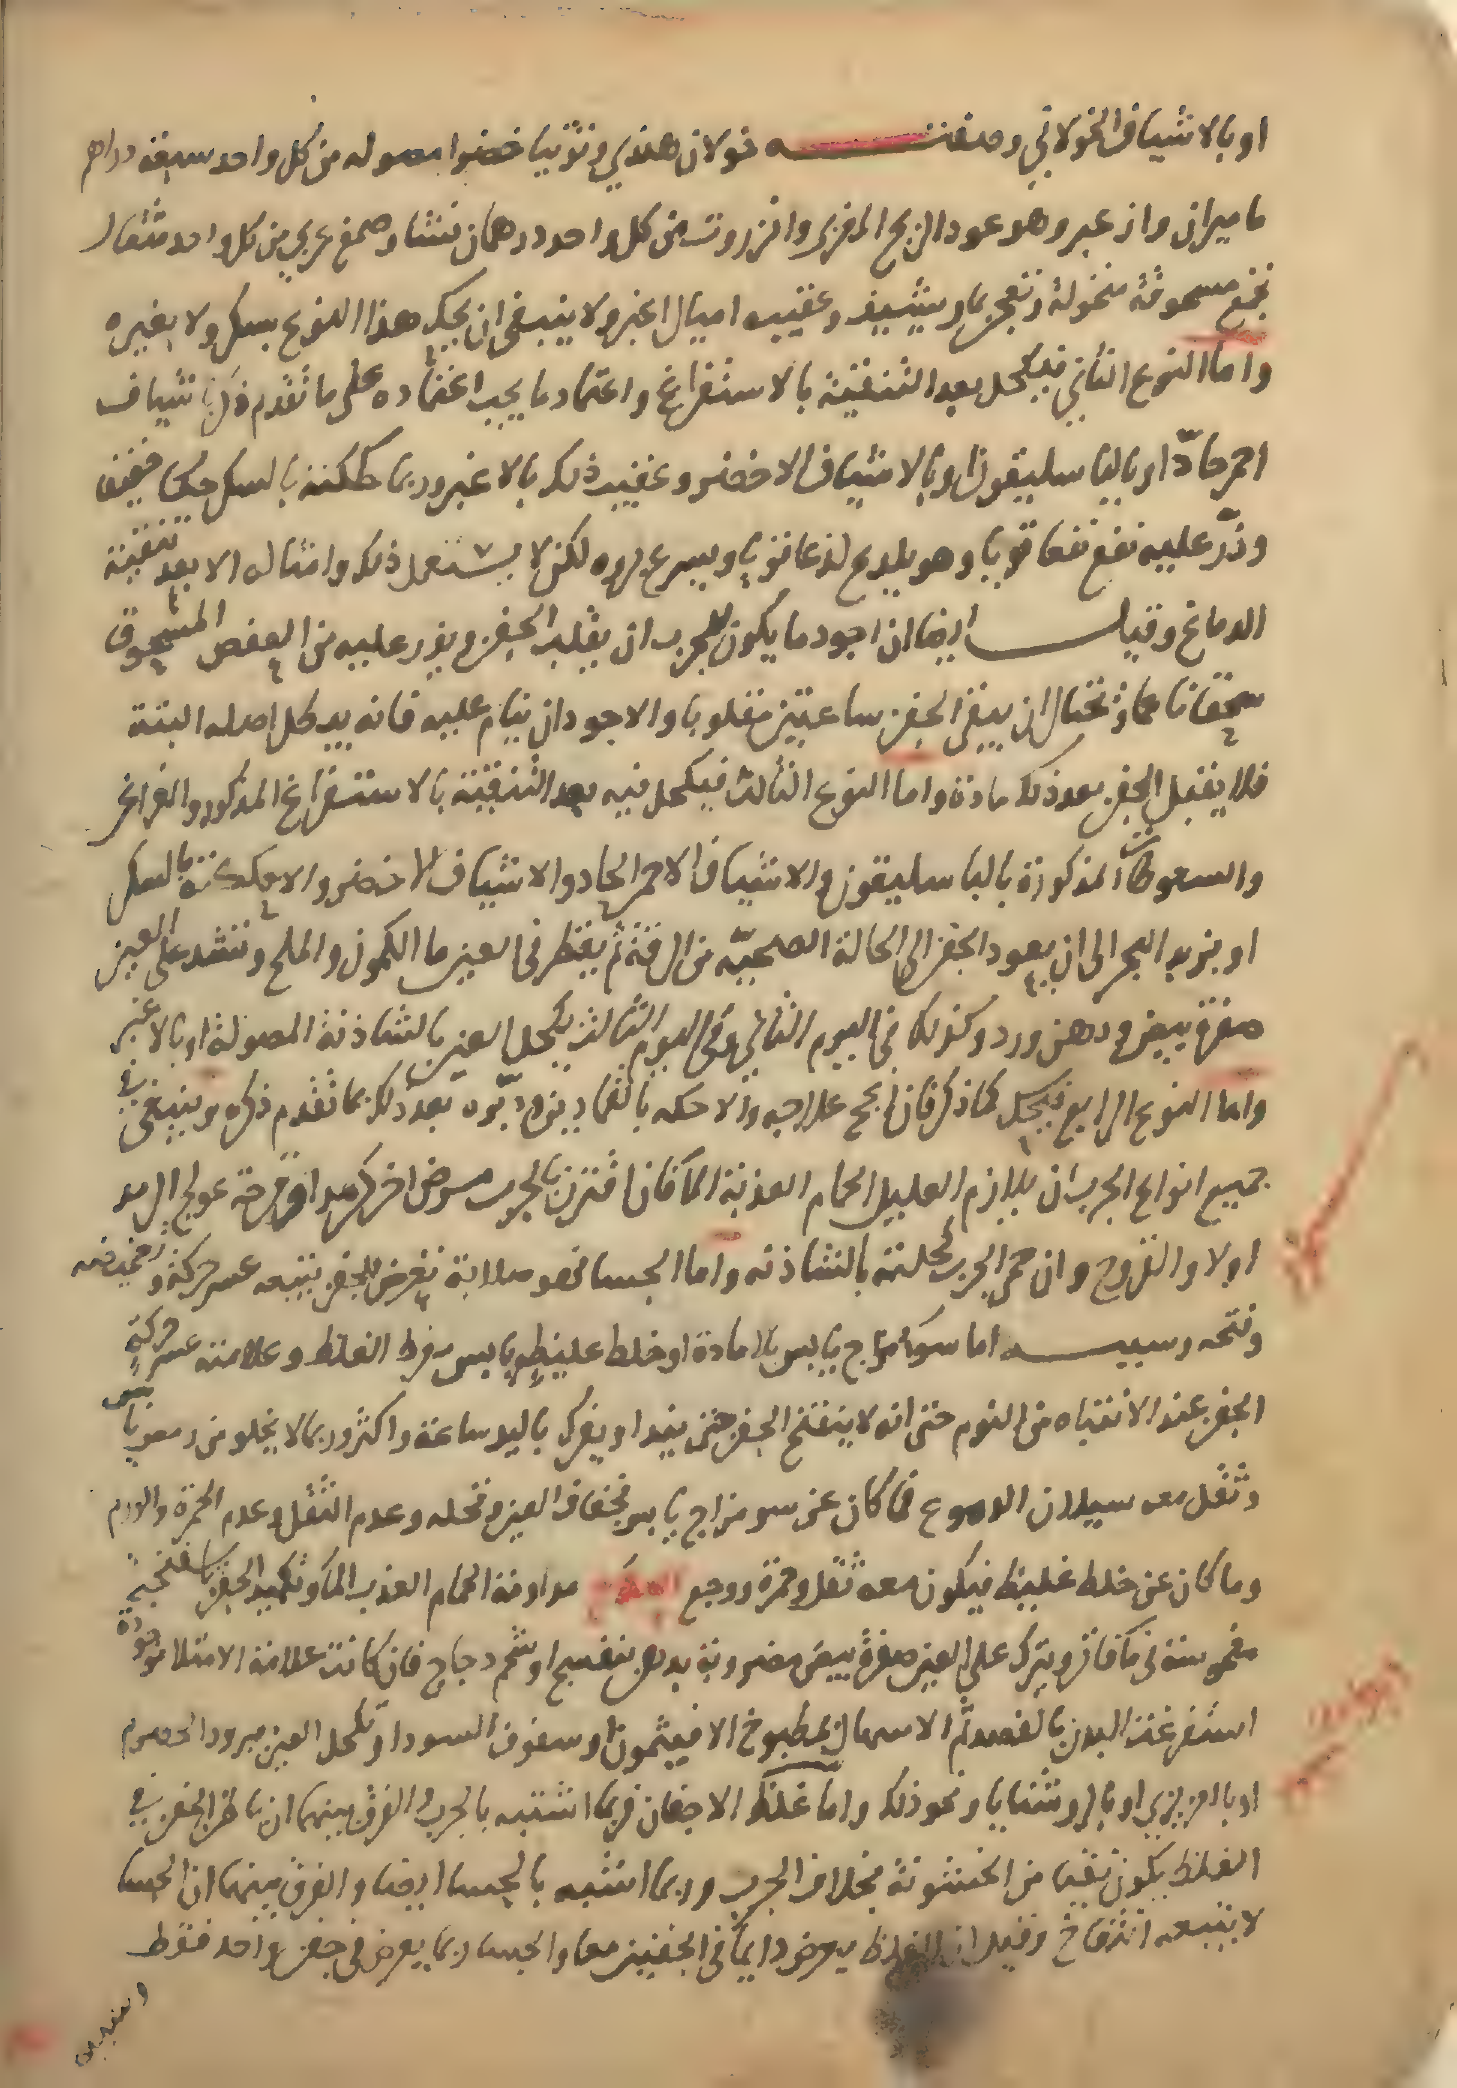 او بالاشياف الخولاني وصفته خولان هندي وتوتيا خضرا مصوله من كل واحد سبعة دراهم
ماميران وازعبر وهو عود الريح وانزروت من كل واحد درهمان نشا وصمغ عربي من كل واحد مثقال
تجمع مسحوقة منخولة وتعجن بماء ويشيف وعقيبه اميال اغبر ولا ينبغي ان يحك هذا النوع بسكر ولا بغيره
واما النوع الثاني فيكحل بعد التنقية بالاستفراغ واعتماد ما يجب اعتماده على ما تقدم ذكره شياف
احمر حادّ او بالباسليقون او بالاشياف الاخضر وعقيب ذلك بالاغبر وربما حككته بالسكر حكا خفيفا
وذرّ عليه نفع نفعا قويا وهو يلدع لذعا قويا ويسرع بروه لكن لا يستعمل ذلك وامثاله الا بعد تنقية
الدماغ وقيل ايضا ان اجود ما يكون للجرب ان يقلب الجفن ويذر عليه من العفص المسحوق
سحقا ناعما وتحتال ان يبقى الجفن ساعتين مقلوبا والاجود ان ينام عليه فانه يدخل اصله البتة
فلا يقبل الجفن بعد ذلك مادة واما النوع الثالث فيكحل فيه بعد التنقية بالاستفراغ المذكور والغراغر
والسعوطات المذكورة بالباسليقون والاشياف الاحمر الحاد والاشياف الاخضر والا حككته بالسكر
او بزبد البحر الى ان يعود الجفن الى الحالة الصحيّه من الرقة ثم يقطر في العين ما الكمون والملح وتشد على العين
صفرة بيض ودهن ورد وكذلك في اليوم الثاني وفي اليوم الثالث يكحل العين بالشاذنة المصولة او بالاغبر
واما النوع الرابع فيحك كما ذكر فان انجح علاجه والا حكه بالقمادين ودبّره بعد ذلك بما تقدم ذكره وينبغي في
جميع انواع الجرب ان يلازم العليل الحمام العذبة الما فان اقترن بالجرب مرض اخر كرمد او قرحة عولج الرمد
اولا والقروح وان حمي الجرب كحلته بالشاذنه واما الجسا فهو صلابة تعرض للجفن يتبعه عسر حركة وتغميضه
وفتحه وسببه اما سوء مزاج يابس بلا مادة او خلط غليظ يابس مفرط الغلظ وعلامته عسر حركة
الجفن عند الانتباه من النوم حتى انه لا ينفتح الجفن حتى يندا او يفرك باليد ساعة واكثر وربما لا يخلو من رمص يابس
وثقل معه سيلان الدموع فما كان عن سو مزاج يابس فجفاف العين وقحله وعدم الثقل وعدم الحمرة والورم
وما كان عن خلط غليظ فيكون معه ثقل وحمرة ووجع العلاج مداومة الحمام العذب الما وتكميد الجفن باسفنجة
مغموسة في ما فاتر ويترك على العين صفرة بيض مضروبة بدهن بنفسج او شحم دجاج فان كانت علامة الامتلا موجودة
استفرغت البدن بالفصد ثم الاسهال بمطبوخ الافيثمون او سفوف السودا وتكحل العين ببرود الحصرم
او بالعزيزي او بالروشنايا ونحو ذلك واما غلظ الاجفان فربما اشتبه بالجرب والفرق بينهما ان باطن الجفن في
الغلظ يكون نقيا من الخشونة بخلاف الجرب وربما اشتبه بالجسا ايضا والفرق بينهما ان الجسا
لا يتبعه انتفاخ وقيل ان الغلظ يعرض دايما في الجفنين معا والجسا ربما يعرض في جفن واحد فقط